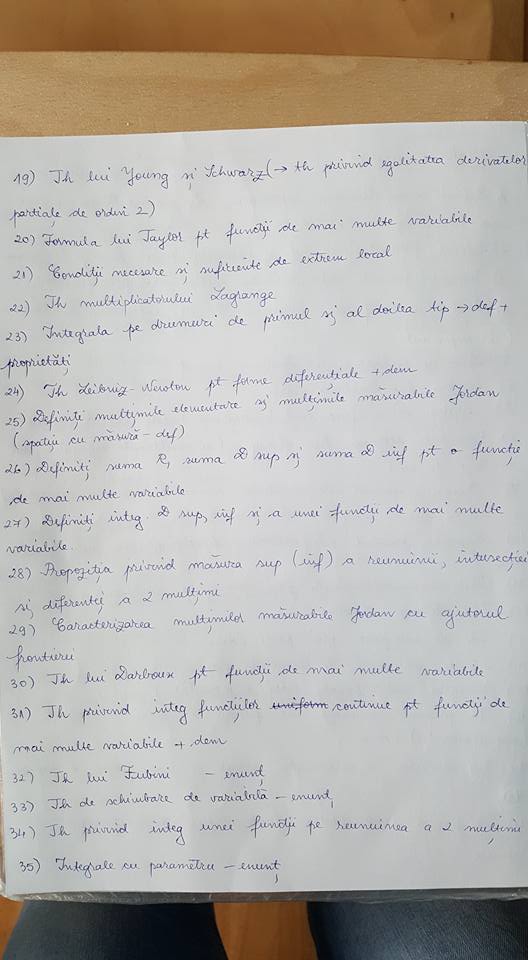 19) Th lui Young și Schwarz (→ th privind egalitatea derivatelor
parțiale de ordin 2)
20) Formula lui Taylor pt funcții de mai multe variabile
21) Condiții necesare și suficiente de extrem local
22) Th multiplicatorului Lagrange
23) Integrala pe drumuri de primul și al doilea tip → def +
proprietăți
24) Th Leibniz-Newton pt forme diferențiale + dem
25) Definiți mulțimile elementare și mulțimile măsurabile Jordan
(spații cu măsură - def)
26) Definiți suma R, suma D sup și suma D inf pt o funcție
de mai multe variabile
27) Definiți integ. D sup, inf și a unei funcții de mai multe
variabile.
28) Propoziția privind măsura sup (inf) a reuniunii, intersecției
și diferenței a 2 mulțimi
29) Caracterizarea mulțimilor măsurabile Jordan cu ajutorul
frontierei
30) Th lui Darboux pt funcții de mai multe variabile
31) Th privind integ funcțiilor uniform continue pt funcții de
mai multe variabile + dem
32) Th lui Fubini - enunț
33) Th de schimbare de variabilă - enunț
34) Th privind integ unei funcții pe reuniunea a 2 mulțimi
35) Integrale cu parametru - enunț